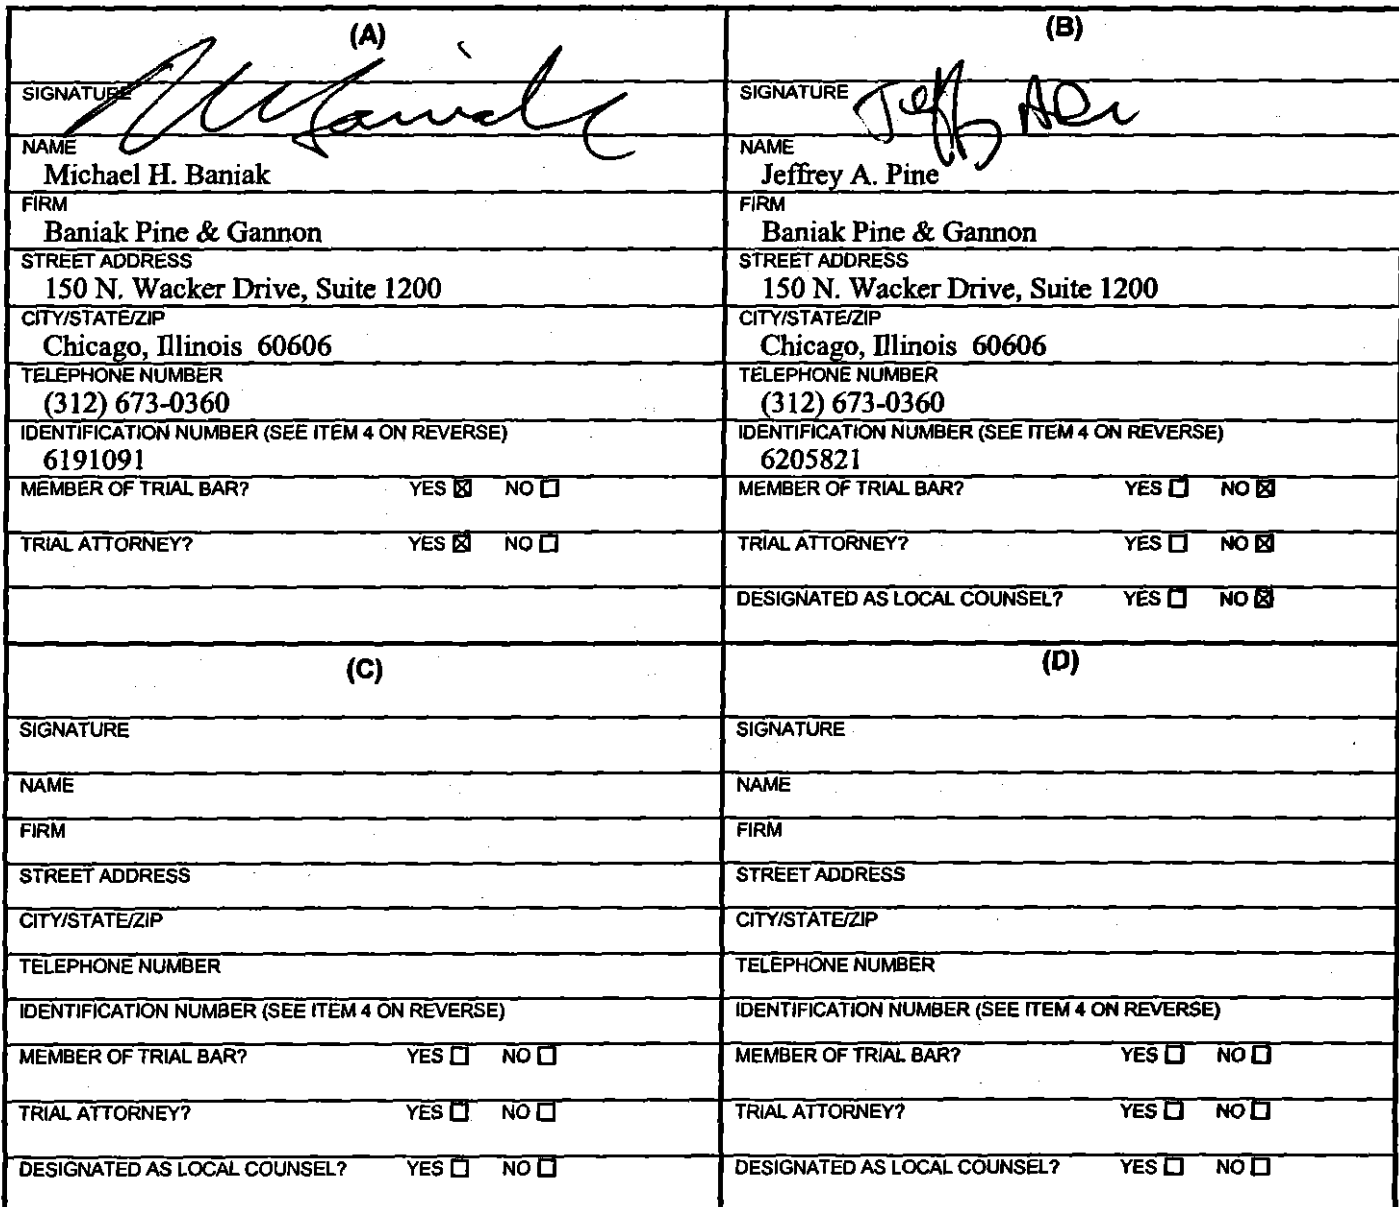 (A)
SIGNATURE
NAME
Michael H. Baniak
FIRM
Baniak Pine & Gannon
STREET ADDRESS
150 N. Wacker Drive, Suite 1200
CITY/STATE/ZIP
Chicago, Illinois 60606
TELEPHONE NUMBER
(312) 673-0360
IDENTIFICATION NUMBER (SEE ITEM 4 ON REVERSE)
6191091
MEMBER OF TRIAL BAR? YES ☒ NO ☐
TRIAL ATTORNEY? YES ☒ NO ☐
(B)
SIGNATURE
NAME
Jeffrey A. Pine
FIRM
Baniak Pine & Gannon
STREET ADDRESS
150 N. Wacker Drive, Suite 1200
CITY/STATE/ZIP
Chicago, Illinois 60606
TELEPHONE NUMBER
(312) 673-0360
IDENTIFICATION NUMBER (SEE ITEM 4 ON REVERSE)
6205821
MEMBER OF TRIAL BAR? YES ☐ NO ☒
TRIAL ATTORNEY? YES ☐ NO ☒
DESIGNATED AS LOCAL COUNSEL? YES ☐ NO ☒
(C)
SIGNATURE
NAME
FIRM
STREET ADDRESS
CITY/STATE/ZIP
TELEPHONE NUMBER
IDENTIFICATION NUMBER (SEE ITEM 4 ON REVERSE)
MEMBER OF TRIAL BAR? YES ☐ NO ☐
TRIAL ATTORNEY? YES ☐ NO ☐
DESIGNATED AS LOCAL COUNSEL? YES ☐ NO ☐
(D)
SIGNATURE
NAME
FIRM
STREET ADDRESS
CITY/STATE/ZIP
TELEPHONE NUMBER
IDENTIFICATION NUMBER (SEE ITEM 4 ON REVERSE)
MEMBER OF TRIAL BAR? YES ☐ NO ☐
TRIAL ATTORNEY? YES ☐ NO ☐
DESIGNATED AS LOCAL COUNSEL? YES ☐ NO ☐